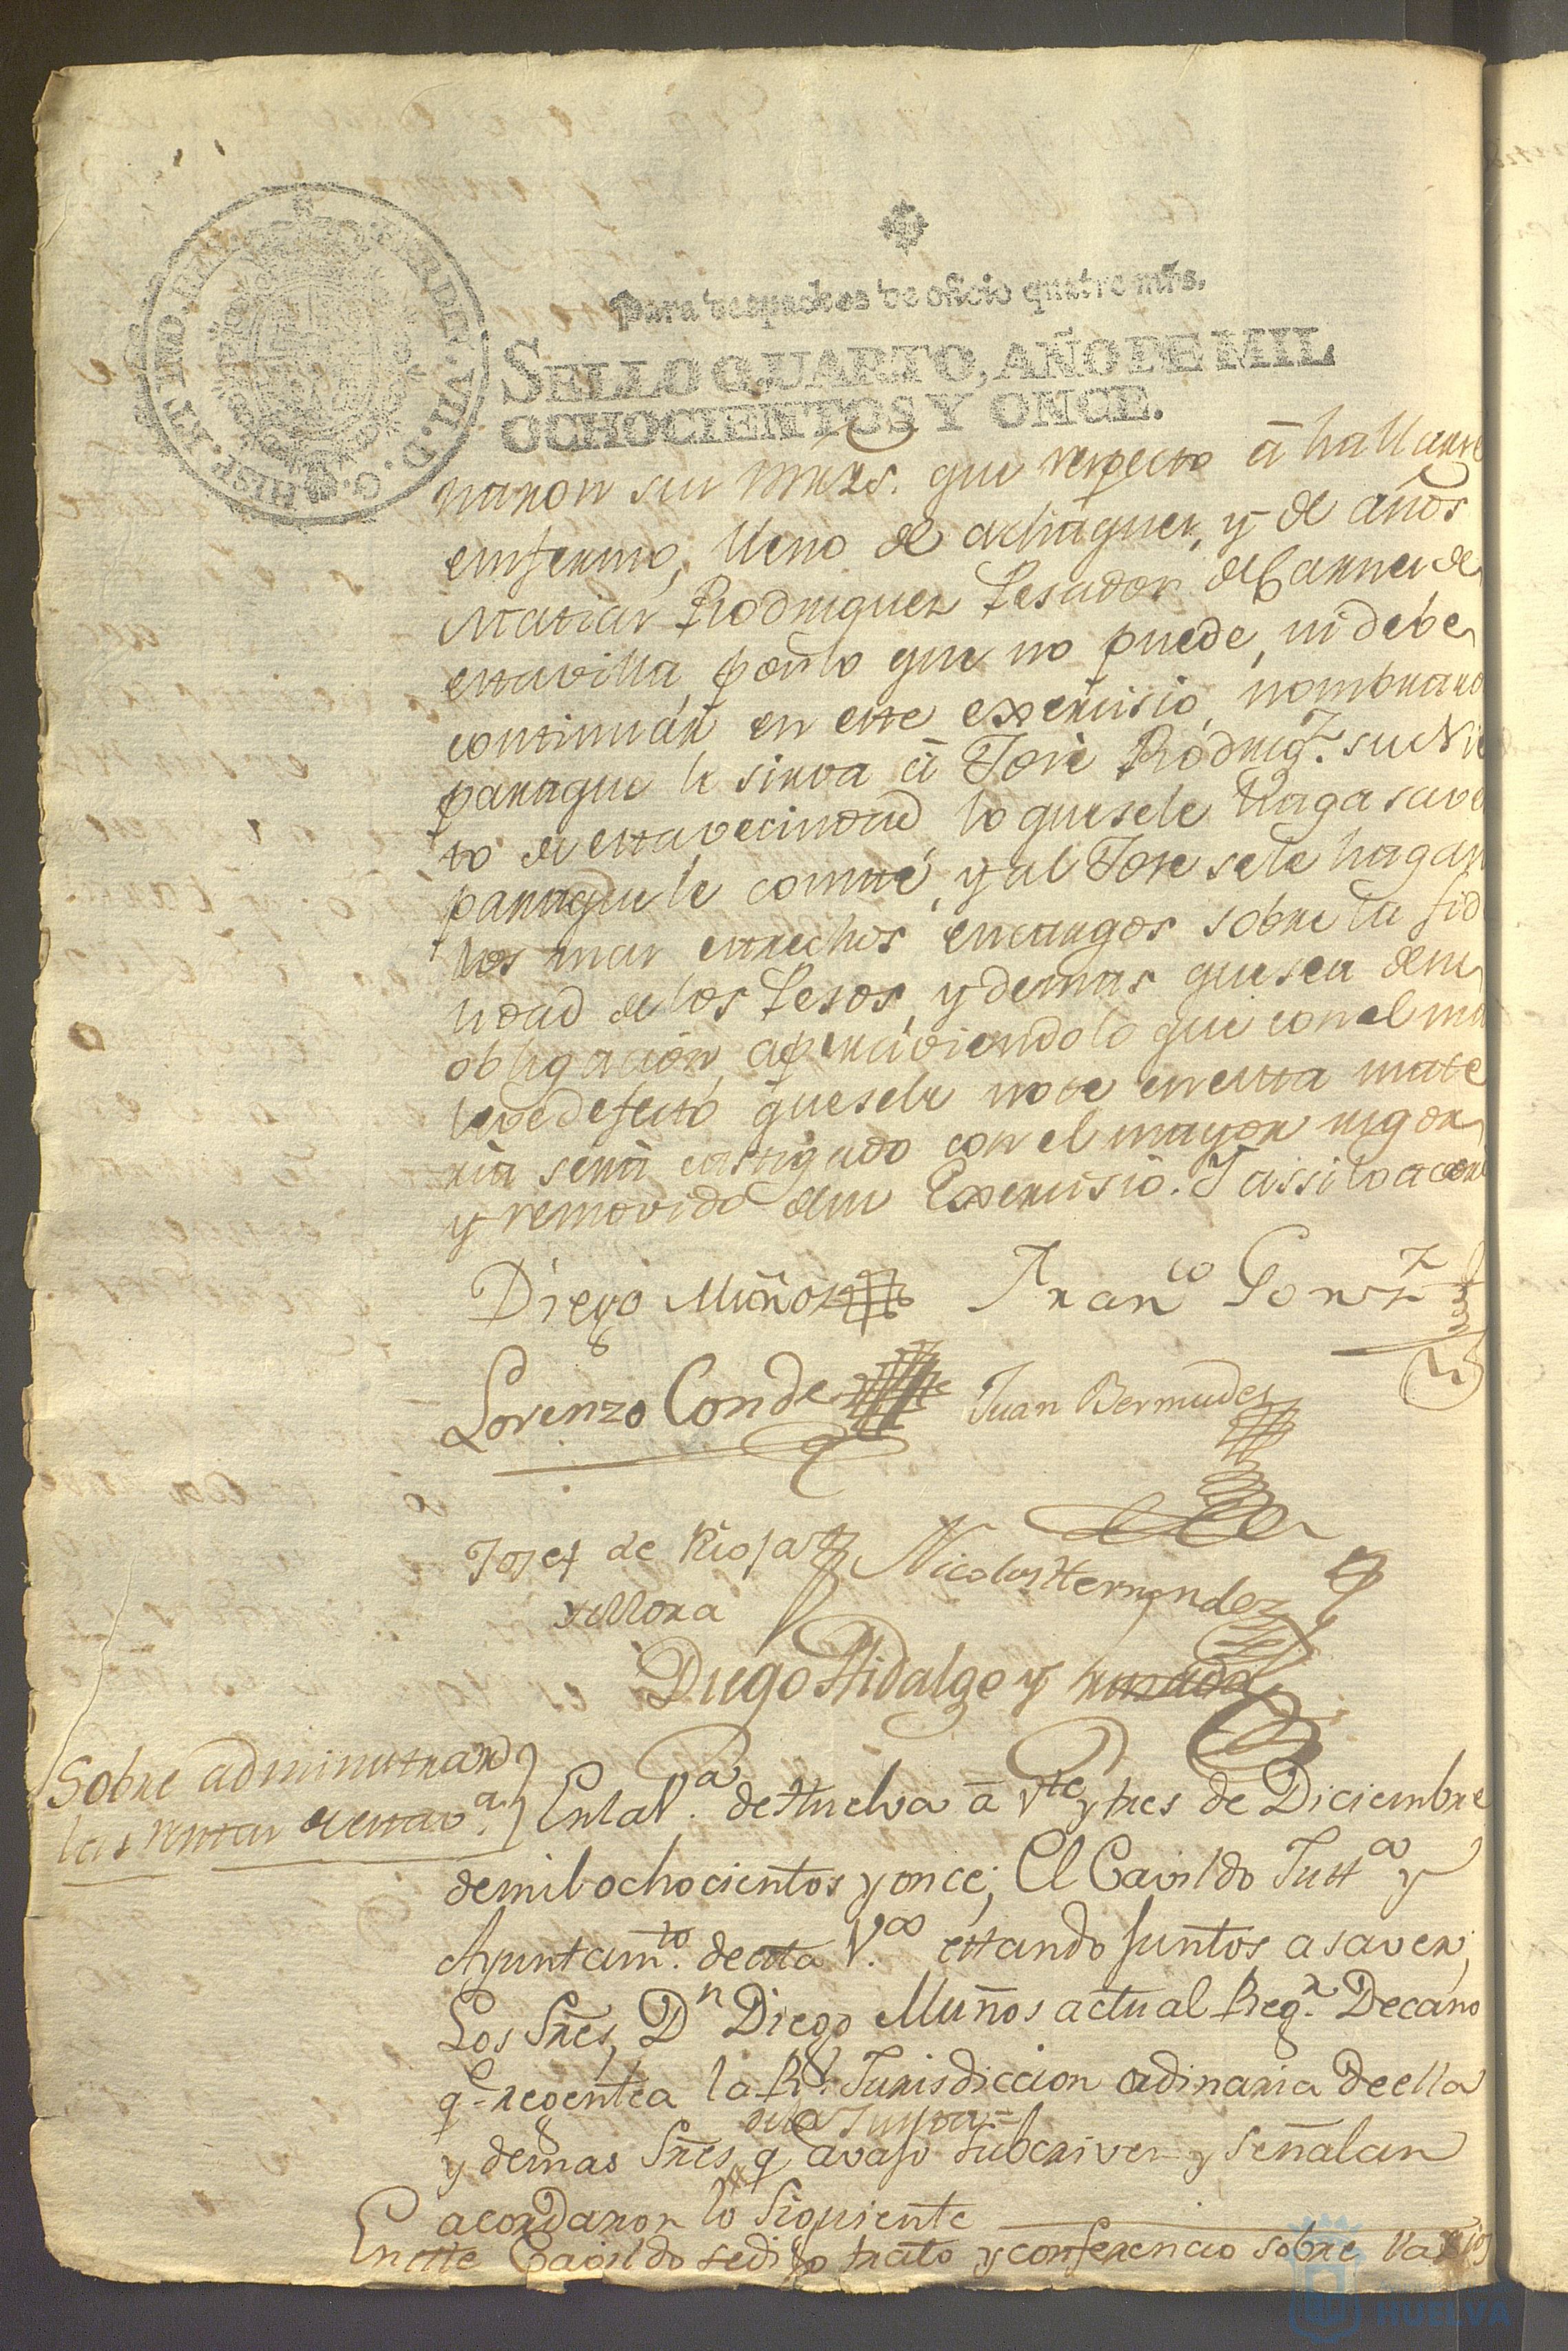 HISP. ET IND. REX. FERD. VII. D. G.
Para despachos de oficio quatro mrs.
SELLO QUARTO, AÑO DE MIL
OCHOCIENTOS Y ONCE.
naron sus mrzs. que respecto â hallarse
emfermo, lleno de achaques, y de años
Matias Rodriguez Pesador de Carnes de
esta villa, por lo que no puede, ni debe
continuar en este exercisio, nombrand
para que le sirva â Jose Rodrig.z su Nie
to de esta vecindad lo que se le haga save
para que le conste, y al Jose se le hagan
los mas estrechos encargos sobre la fid
lidad de los Pesos, y demas que sea de su
obligacion, aperciviendolo que con el ma
leve defecto que se le note en esta mate
ria será castigado con el mayor rigor
y removido de su Exercisio. Y assi lo acor
Diego Muñoz Fran.co Gonz.z
Lorenzo Conde Juan Bermudez
Josef de Rioja Nicolas Hernandez
y Mora
Diego Hidalgo y
Sobre administrar
las rentas de esta v.a
En la V.a de Huelva â v.te y tres de Diciembre
de mil ochocientos y once; El Cavildo Just.a y
Ayuntam.to de esta V.a estando juntos a saver;
Los Sres, D.n Diego Muños actual Reg.r Decano
q.e regentea la R.l Jurisdiccion ordinaria de ella
de la Junta =
y demas Sres, q avajo subcriven y señalan
acordaron lo siguiente
En este Cavildo se dijo trato y conferencio sobre varios
HUELVA